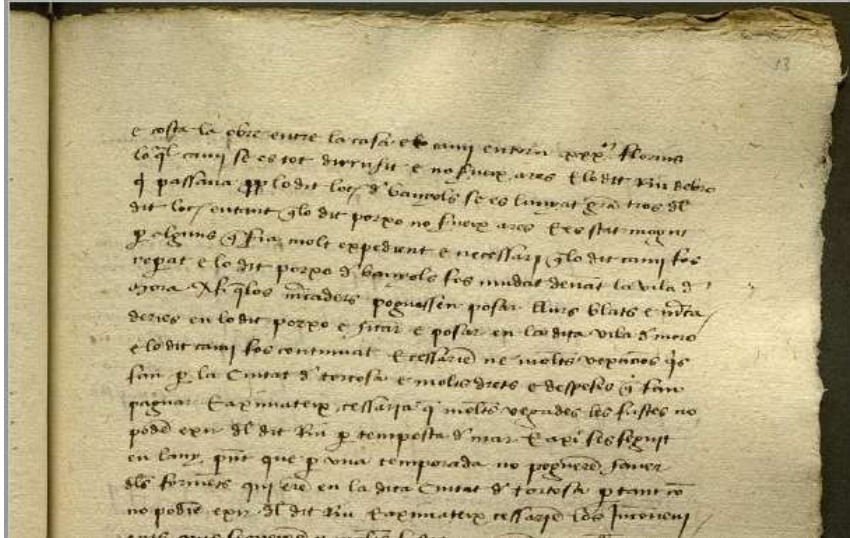 13
e costa la obra entre la casa e lo cami entorn xxx florins
lo qual cami se es tot diruhit e no serveix ares E lo dit Riu debro
q passava prop lo dit loch d banyols se es lunyat gran tros dl
dit loch entant qlo dit porxo no serveix ares E es stat mogut
p alguns q seria molt expedient e necessari qlo dit cami fos
reparat e lo dit porxo d banyols fos mudat devant la vila d
mora Axi qlos mercaders poguessen posar llurs blats e merca
deries en lo dit porxo e sitar e posar en la dita vila d mora
e lo dit cami fos continuat E cessarien ne molts vexacions qls
fan p la Ciutat d tortosa e molts drets e despeses q fan
paguar E aximateix cessaria q moltes vegades les fustes no
poden exir dl dit Riu p tempesta d mar E axi ses seguit
en lany pnt que p una temporada no pogueren haver
dls forments qui eren en la dita Ciutat d tortosa p tant co
no podien exir dl dit Riu E aximateix cessarien los Inconveni